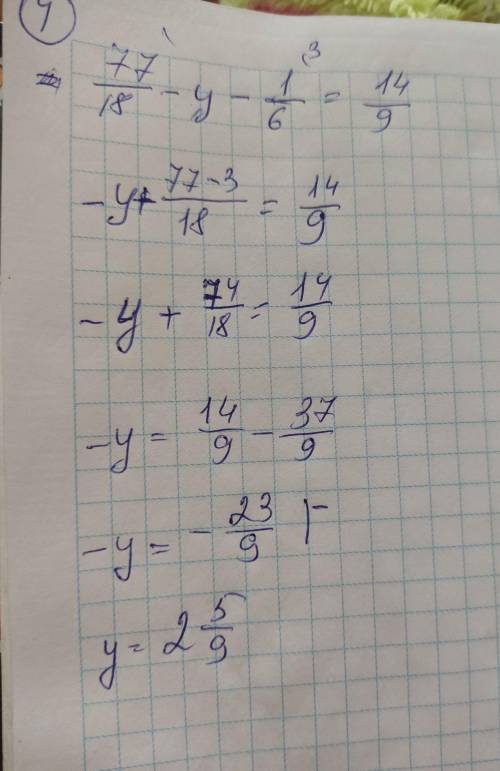 4
77/18 - y - 1/6 ³ = 14/9
-y + 77-3/18 = 14/9
-y + 74/18 = 14/9
-y = 14/9 - 37/9
-y = - 23/9 |-
y = 2 5/9